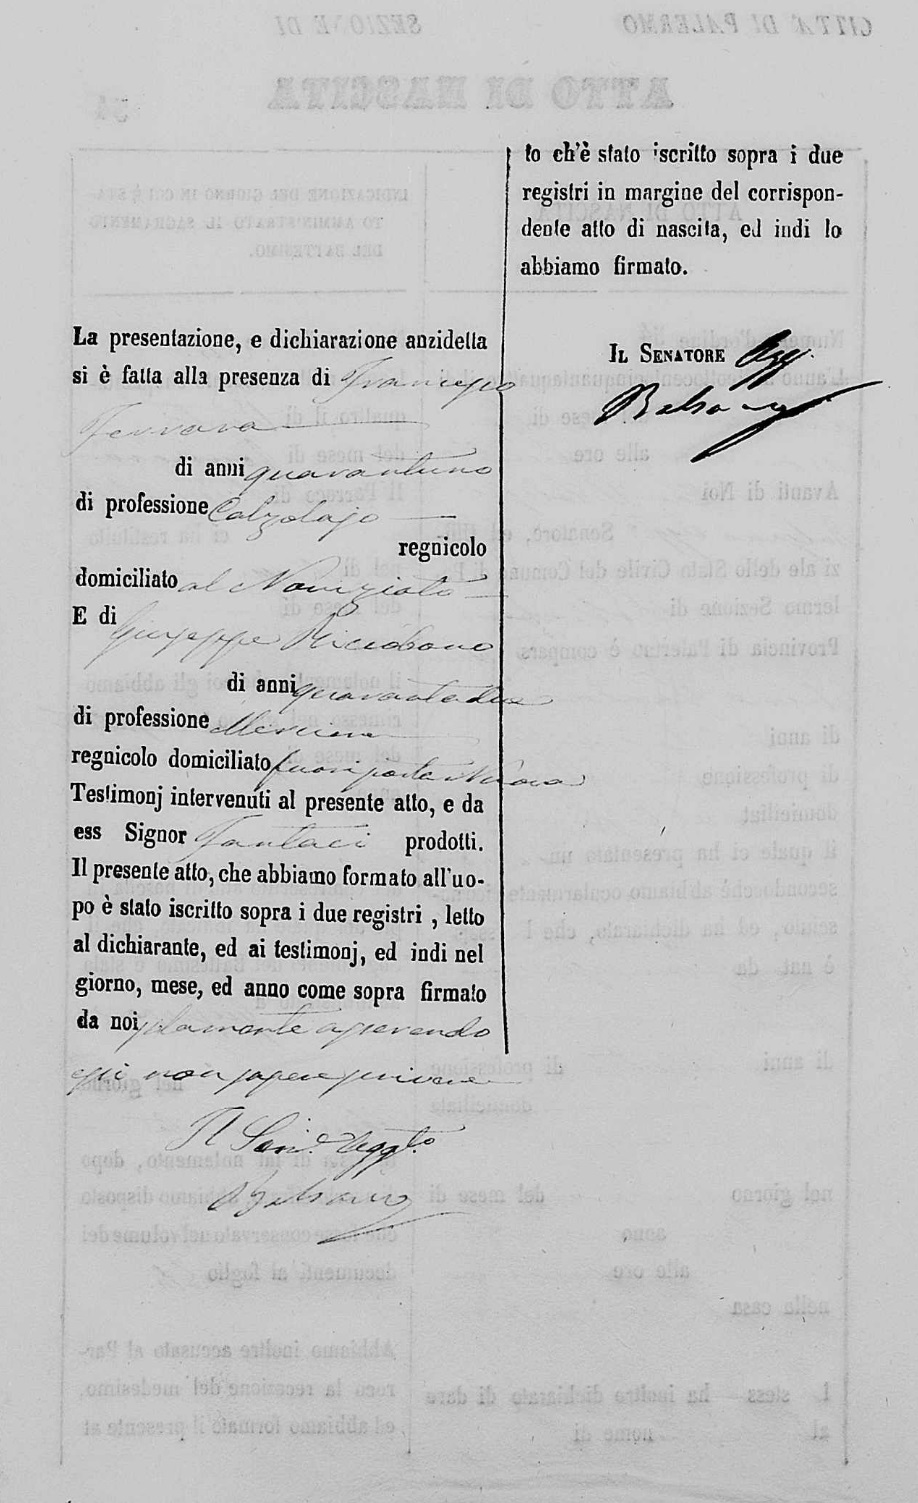 La presentazione, e dichiarazione anzidetta
si è fatta alla presenza di Francesco
Ferrara
di anni quarantuno
di professione Calzolajo
regnicolo
domiciliato al Noviziato
E di Giuseppe Riccobono
di anni quarantadue
di professione
regnicolo domiciliato fuori porta Nuova
Testimonj intervenuti al presente atto, e da
ess Signor Fantaci prodotti.
Il presente atto, che abbiamo formato all'uo-
po è stato iscritto sopra i due registri, letto
al dichiarante, ed ai testimonj, ed indi nel
giorno, mese, ed anno come sopra firmato
da noi solamente asserendo
essi non sapere scrivere
Il Sen.e Aggto
Balsano
to ch'è stato iscritto sopra i due
registri in margine del corrispon-
dente atto di nascita, ed indi lo
abbiamo firmato.
IL SENATORE Agg
Balsano